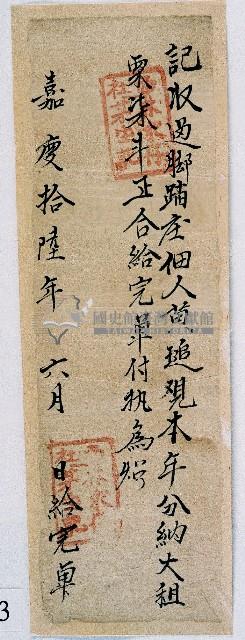 記收過脚踏庄佃人苗追覌本年分納大租
粟柒斗正合給完單付执為炤
嘉慶拾陸年六月　日給完單
國史館臺灣文獻館
3